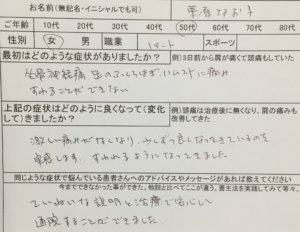 お名前(無記名・イニシャルでも可)
ご年齢 10代 20代 30代 40代 50代 60代 70代 80代
性別 女 男 職業 パート スポーツ
最初はどのような症状がありましたか? 例)3日前から肩が痛くて頭も痛していた
坐骨神経痛 左のふくらはぎ、ハムストに痛み
すわることができない
上記の症状はどのように良くなって(変化して)きましたか? 例)頭痛は治療後に無くなり、肩の痛みも改善してきた
激しい痛みがなくなり、少しずつ良くなってきているのを
実感します。すわれるようになってきました
同じような症状で悩んでいる患者さんへのアドバイスやメッセージがあれば教えてください
今までできなかった事ができた、他院と比べてここが違う、養生法を実践してみて等々。
ていねいな説明と治療で安心して
通院することができました。